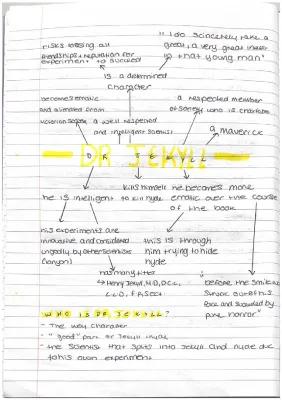 risks losing all
friendships + reputation for
experiment to succeed
"I do sincerely take a
great, a very great interest
in that young man"
is a determined
character
becomes erratic
and alienated from
victorian society
a respected member
of society who is charitable
a well respected
and intelligent scientist
a maverick
DR JEKYLL
he is intelligent
kills himself
to kill hyde
he becomes more
erratic over the course
of the book
his experiments are
innovative and considered
ungodly by other scientists
(Lanyon)
this is through
him trying to hide
hyde
has many titles
↳ Henry Jekyll, M.D, D.C.L,
L.L.D, F.R.S etc
"before the smile was
struck out of his
face and succeeded by
pure horror"
WHO IS DR JEKYLL?
- The way character
- "good" part of Jekyll Hyde
- the scientist that splits into Jekyll and Hyde due
to his own experiment